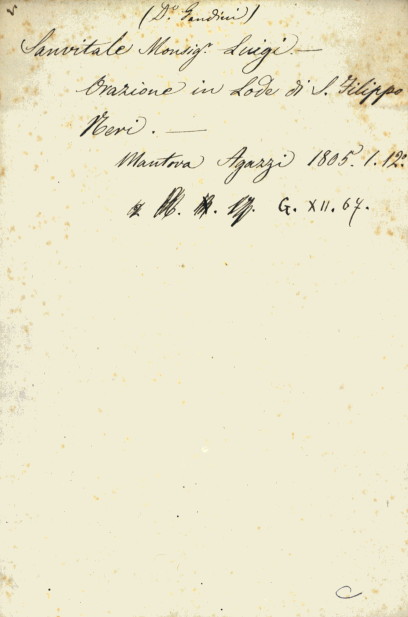 (D.º Gandini)
Sanvitale Monsig.r Luigi. —
Orazione in Lode di S. Filippo
Neri. —
Mantova Agazzi 1805. 1. 12º
G. XII. 67.
C